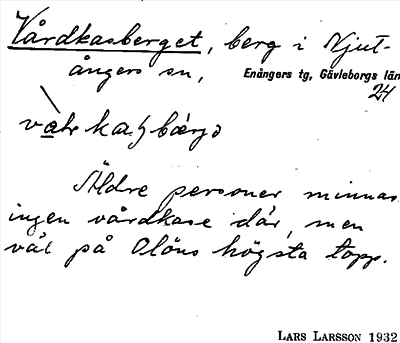 Vårdkasberget, berg i Njut-
ångers sn, Enångers tg, Gävleborgs län
24
Äldre personer minnas
ingen vårdkase där, men
väl på Olöns högsta topp.
LARS LARSSON 1932